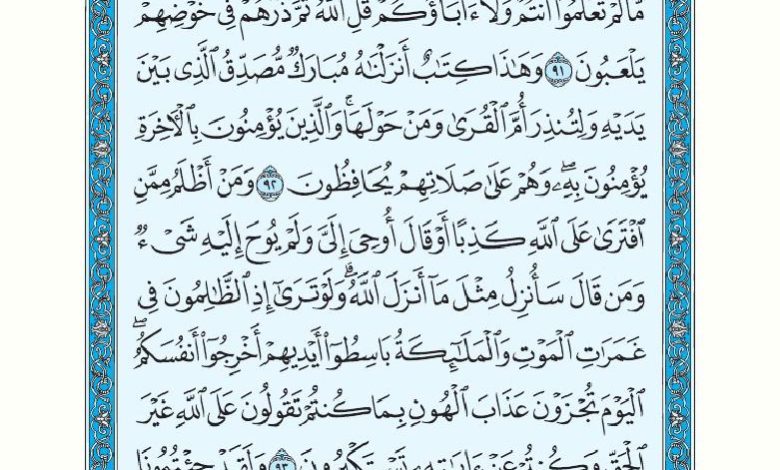 مَّا لَمْ تَعْلَمُوٓا۟ أَنتُمْ وَلَآ ءَابَآؤُكُمْ قُلِ ٱللَّهُ ثُمَّ ذَرْهُمْ فِى خَوْضِهِمْ
يَلْعَبُونَ ٩١ وَهَٰذَا كِتَٰبٌ أَنزَلْنَٰهُ مُبَارَكٌ مُّصَدِّقُ ٱلَّذِى بَيْنَ
يَدَيْهِ وَلِتُنذِرَ أُمَّ ٱلْقُرَىٰ وَمَنْ حَوْلَهَا ۚ وَٱلَّذِينَ يُؤْمِنُونَ بِٱلْءَاخِرَةِ
يُؤْمِنُونَ بِهِۦ ۖ وَهُمْ عَلَىٰ صَلَاتِهِمْ يُحَافِظُونَ ٩٢ وَمَنْ أَظْلَمُ مِمَّنِ
ٱفْتَرَىٰ عَلَى ٱللَّهِ كَذِبًا أَوْ قَالَ أُوحِىَ إِلَىَّ وَلَمْ يُوحَ إِلَيْهِ شَىْءٌ
وَمَن قَالَ سَأُنزِلُ مِثْلَ مَآ أَنزَلَ ٱللَّهُ ۗ وَلَوْ تَرَىٰٓ إِذِ ٱلظَّٰلِمُونَ فِى
غَمَرَٰتِ ٱلْمَوْتِ وَٱلْمَلَٰٓئِكَةُ بَاسِطُوٓا۟ أَيْدِيهِمْ أَخْرِجُوٓا۟ أَنفُسَكُمُ ۖ
ٱلْيَوْمَ تُجْزَوْنَ عَذَابَ ٱلْهُونِ بِمَا كُنتُمْ تَقُولُونَ عَلَى ٱللَّهِ غَيْرَ
ٱلْحَقِّ وَكُنتُمْ عَنْ ءَايَٰتِهِۦ تَسْتَكْبِرُونَ ٩٣ وَلَقَدْ جِئْتُمُونَا